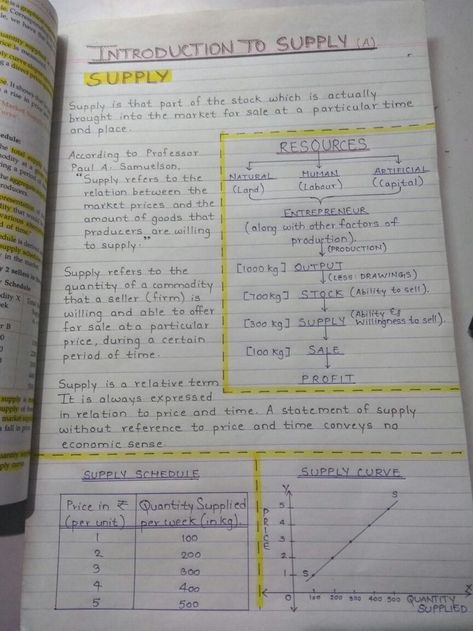 INTRODUCTION TO SUPPLY (A)
SUPPLY
Supply is that part of the stock which is actually
brought into the market for sale at a particular time
and place.
According to Professor
Paul A. Samuelson,
"Supply refers to the
relation between the
market prices and the
amount of goods that
producers are willing
to supply."
Supply refers to the
quantity of a commodity
that a seller (firm) is
willing and able to offer
for sale at a particular
price, during a certain
period of time.
Supply is a relative term
It is always expressed
in relation to price and time. A statement of supply
without reference to price and time conveys no
economic sense.
RESOURCES
NATURAL HUMAN ARTIFICIAL
(Land) (Labour) (Capital)
ENTREPRENEUR
(along with other factors of
production).
(PRODUCTION)
[1000 kg] OUTPUT
(LESS: DRAWINGS)
[700kg] STOCK (Ability to sell).
[300 kg] SUPPLY (Ability &
Willingness to sell).
[100 kg] SALE
PROFIT
SUPPLY SCHEDULE
Price in ₹ Quantity Supplied
(per unit) per week (in kg).
1 100
2 200
3 300
4 400
5 500
SUPPLY CURVE
Y
PRICE
5
4
3
2
1
0
S
S
100 200 300 400 500
X
QUANTITY
SUPPLIED